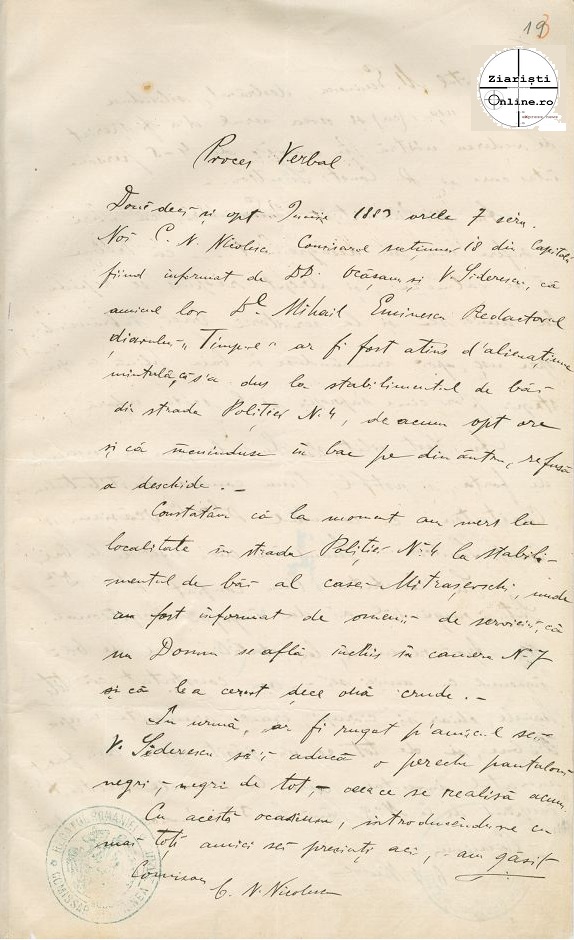 193
Ziariști
Online.ro
Proces Verbal
Douĕdeci și opt Iunie 1883 orele 7 séra.
Noi C. N. Nicolescu Comisarul secțiunei 18 din Capitală
fiind informat de DD. Ocășanu și V. Siderescu, că
amicul lor Dl. Mihail Eminescu Redactorul
diarului „Timpul” ar fi fost atins d'alienațiune
mintală, și s'a dus la stabilimentul de băi
din strada Poliției N. 4, de acum opt ore
și că încuindu-se în bae pe dinăntru, refusă
a deschide. —
Constatăm că la moment am mers la
localitate în strada Poliției N. 4 la stabili-
mentul de băi al casei Mitrașevschi, unde
am fost informat de omenii de serviciu, că
un Domnu se află închis în camera N. 7
și că le a cerut dece ouă crude. —
În urmă, ar fi rugat p'amicul seŭ
V. Siderescu să-i aducă o pereche pantaloni
negri, negri de tot, — ceea ce se realisă acum,
Cu acéstă ocasiune, introducêndu-ne cu
mai toți amici seĭ presenți aci, — am găsit
Comisar
C. N. Nicolescu